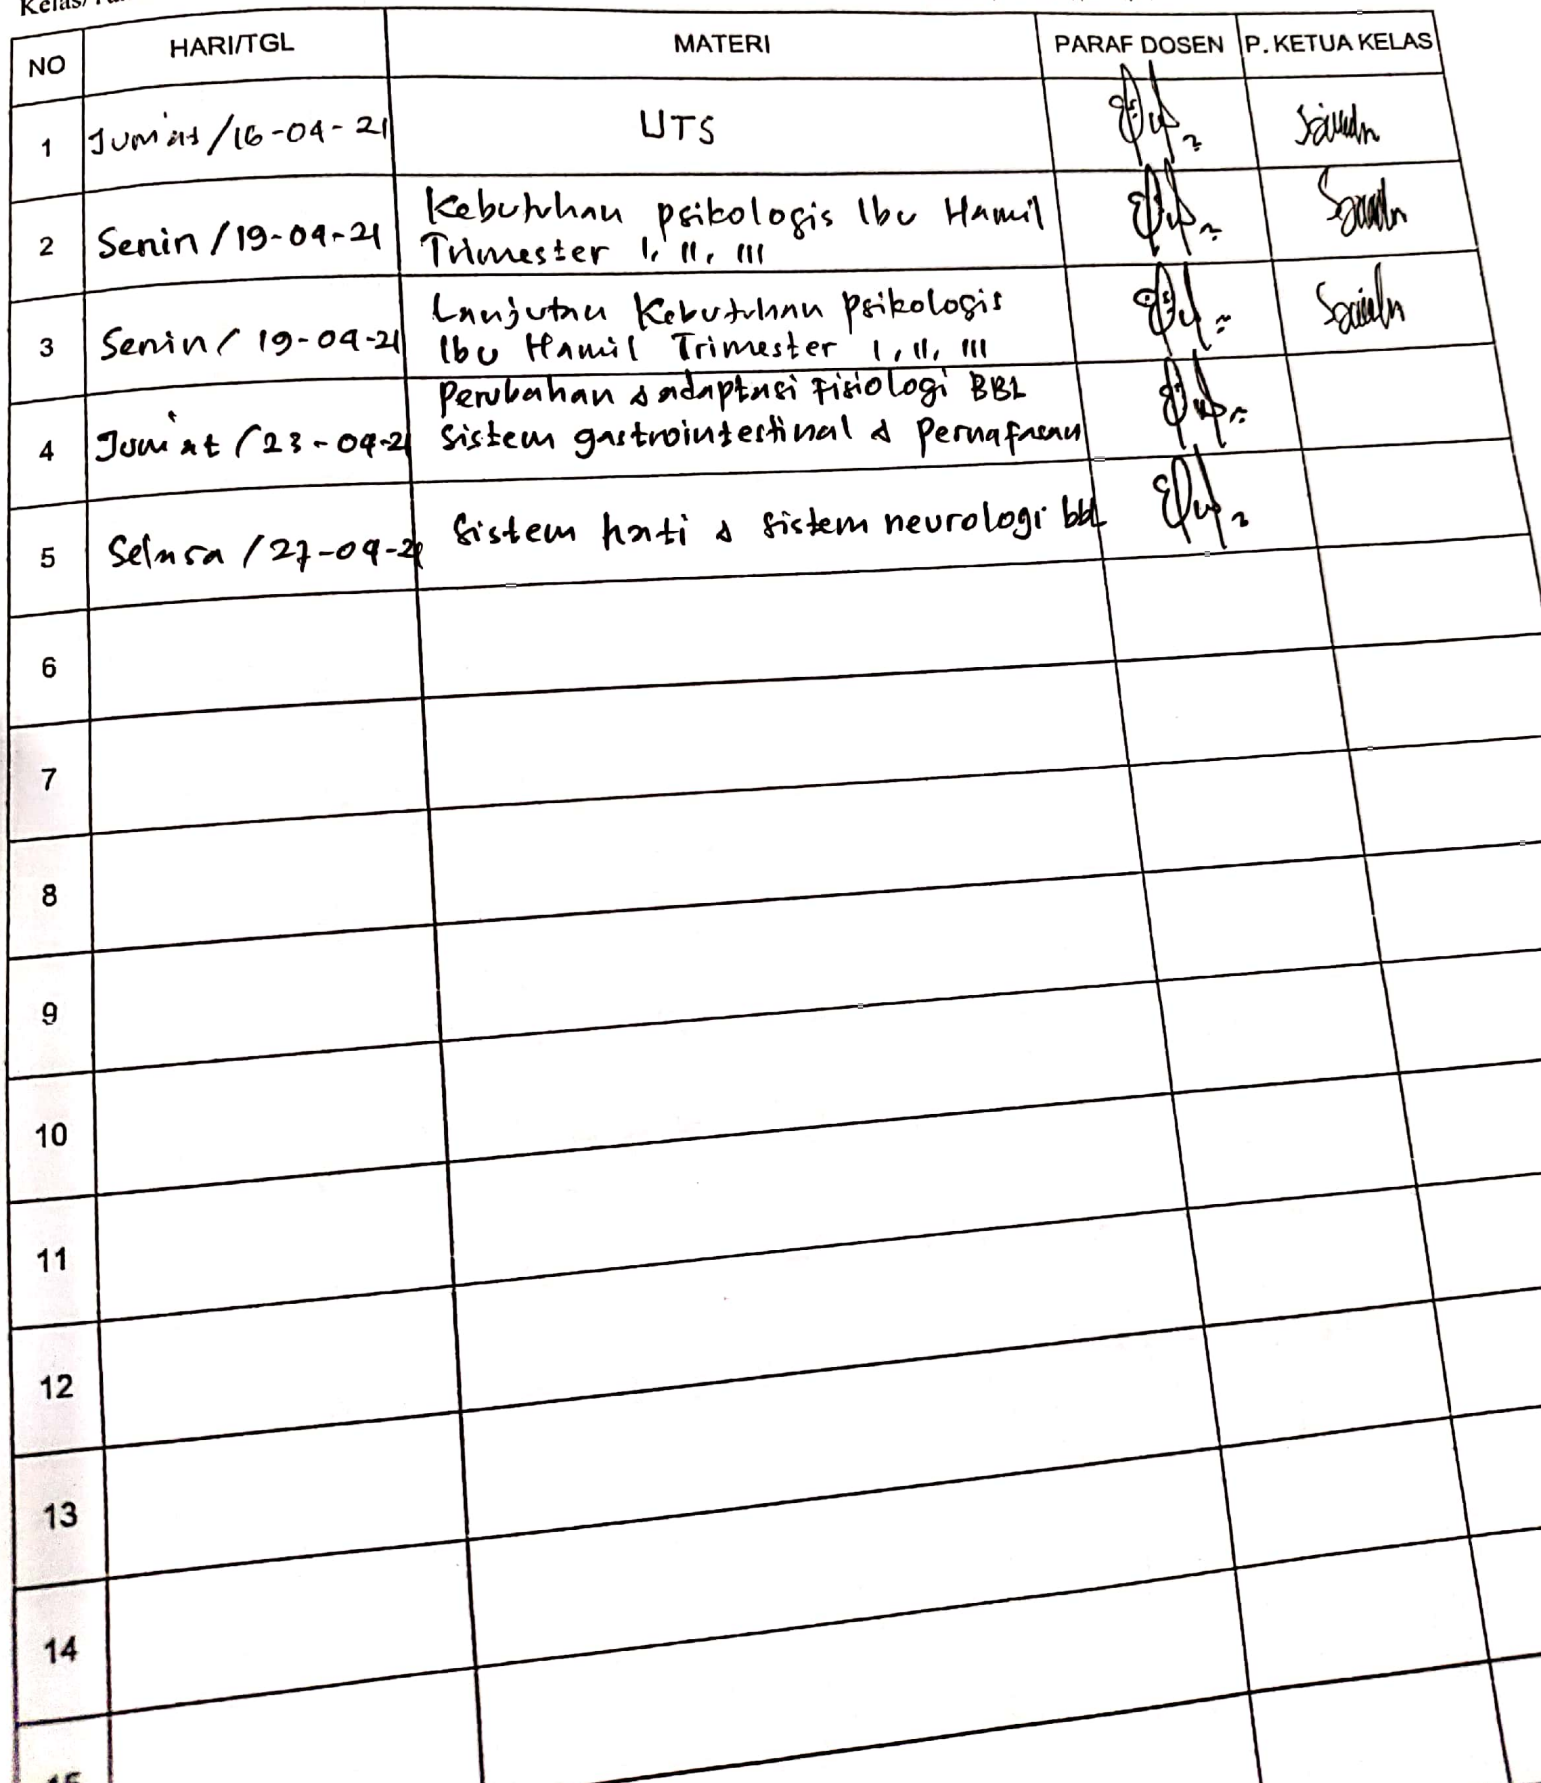 NO HARI/TGL MATERI PARAF DOSEN P. KETUA KELAS
1 Jum'at /16-04-21 UTS
2 Senin /19-04-21 Kebutuhan psikologis Ibu Hamil
Trimester I, II, III
3 Senin / 19-04-21 Lanjutan Kebutuhan psikologis
Ibu Hamil Trimester I, II, III
4 Jum'at /23-04-21 Perubahan & adaptasi Fisiologi BBL
sistem gastrointestinal & Pernafasan
5 Selasa /27-04-21 Sistem hati & sistem neurologi bbl
6
7
8
9
10
11
12
13
14
15